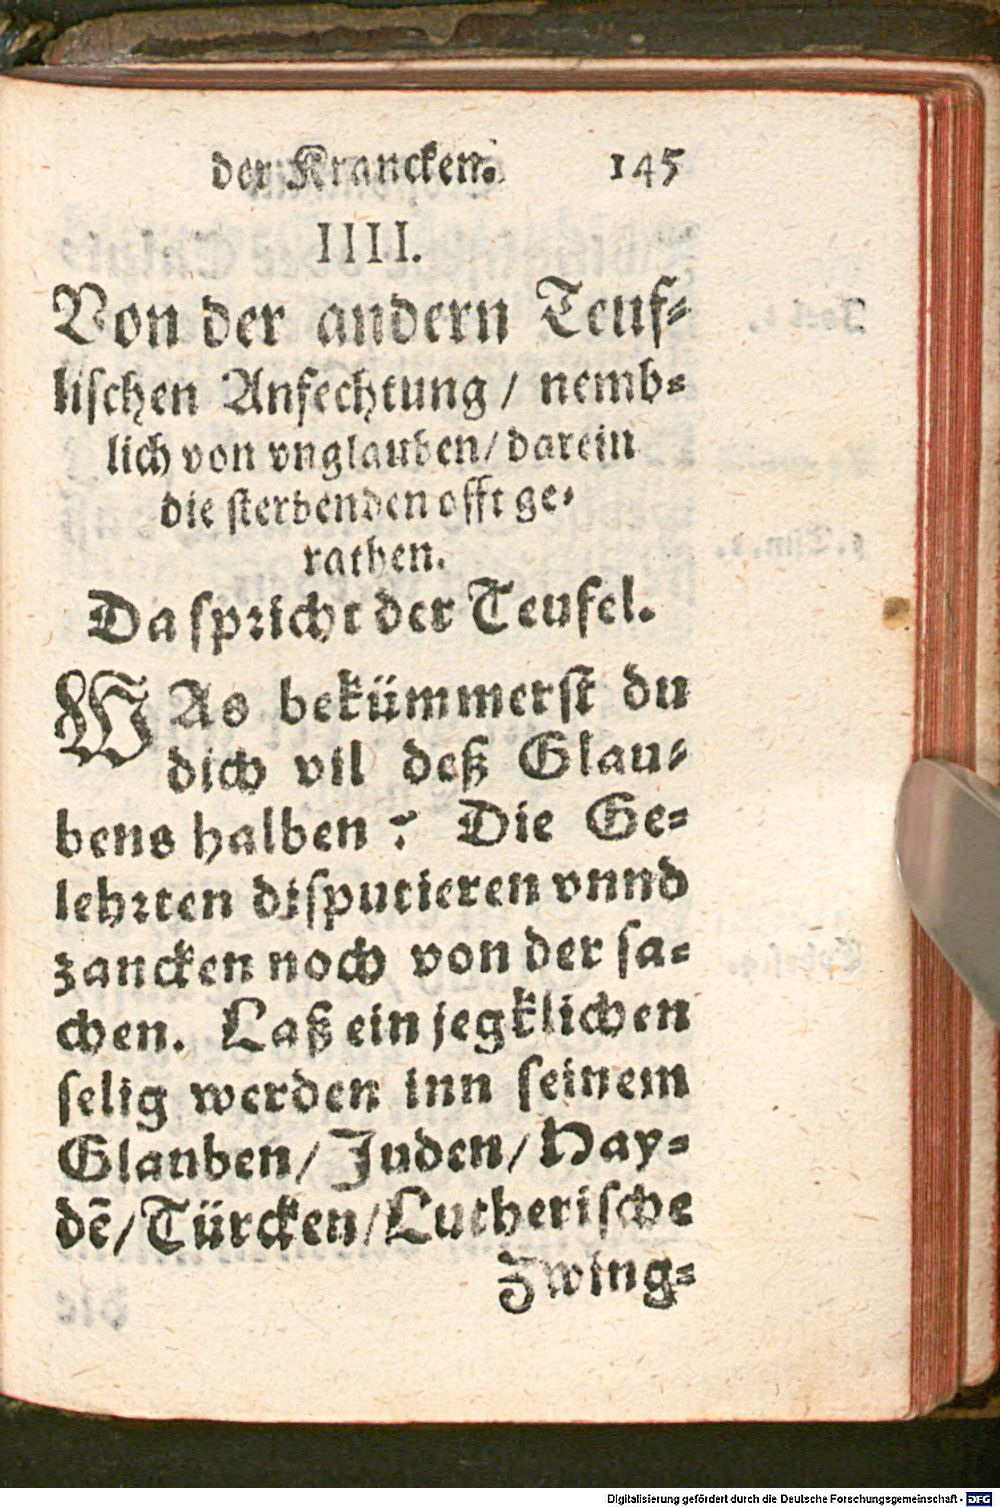 der Krancken. 145
IIII.
Von der andern Teuf⸗
lischen Anfechtung / nemb⸗
lich von vnglauben / darein
die sterbenden offt ge⸗
rathen.
Da spricht der Teufel.
WAs bekümmerst du
dich vil deß Glau⸗
bens halben ? Die Ge⸗
lehrten disputieren vnnd
zancken noch von der sa⸗
chen. Laß ein jegklichen
selig werden inn seinem
Glauben / Juden / Hay⸗
dē / Türcken / Lutherische
Zwing⸗
Digitalisierung gefördert durch die Deutsche Forschungsgemeinschaft - DFG